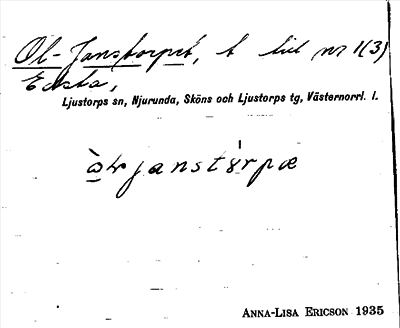 Ol-Janstorpet, t hd nr 1(3)
Edsta,
Ljustorps sn, Njurunda, Sköns och Ljustorps tg, Västernorrl. l.
janstörpæ
ANNA-LISA ERICSON 1935